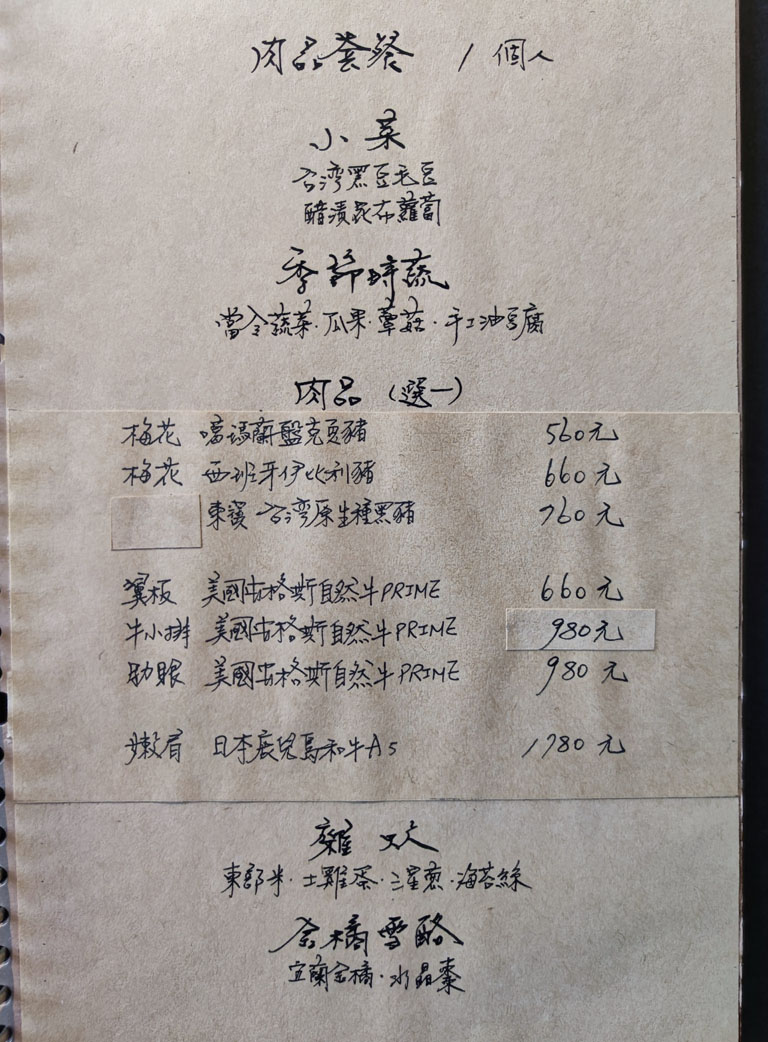 肉品套餐 / 個人
小菜
台湾黑豆毛豆
醋漬昆布蘿蔔
季節時蔬
當令蔬菜·瓜果·蕈菇·手工油豆腐
肉品 (選一)
梅花 噶瑪蘭盤克夏豬 560元
梅花 西班牙伊比利豬 660元
東寶 台湾原生種黑豬 760元
翼板 美國安格斯自然牛PRIME 660元
牛小排 美國安格斯自然牛PRIME 980元
肋眼 美國安格斯自然牛PRIME 980元
嫩肩 日本鹿兒島和牛A5 1780元
雜炊
東部米·土雞蛋·三星蔥·海苔絲
金橘雪酪
宜蘭金橘·水晶棗